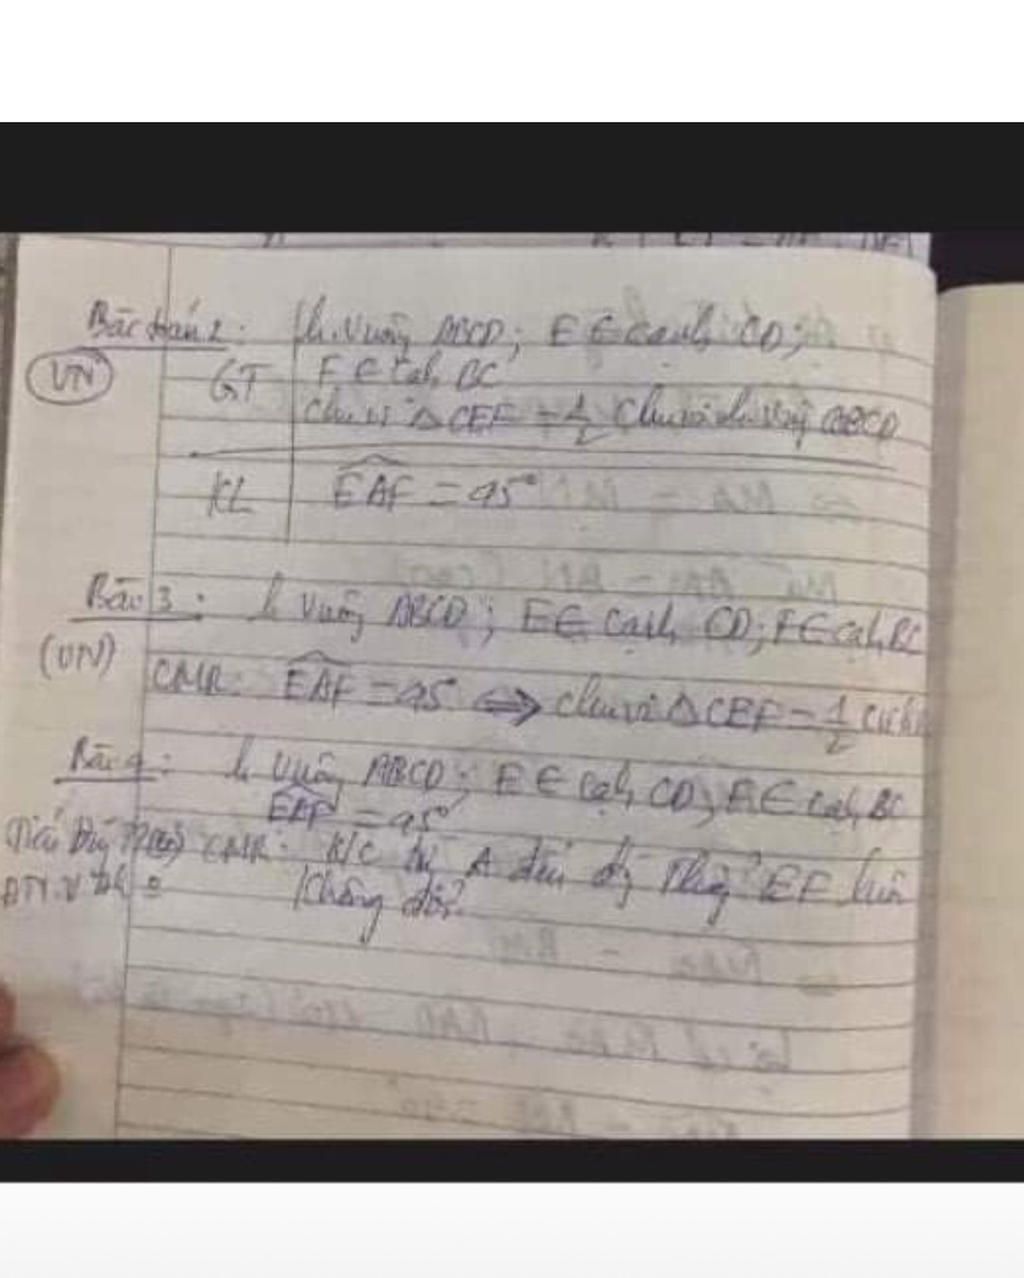 Bài toán 2: h. vuông ABCD; E ∈ cạnh CD;
(VN) GT F ∈ cạh BC
Chu vi △ CEF = 1/2 Chu vi h. vuông ABCD
KL EAF = 45°
Bài 3: h vuông ABCD; E ∈ cạnh CD; F ∈ cạh BC
(VN)
CMR: EAF = 45 ⟺ chu vi △ CEF = 1/2
Bài 4: h vuông ABCD; E ∈ cạh CD, F ∈ cạh BC
EAF = 45°
CMR: K/C từ A đến đg thẳng EF luôn
không đổi?